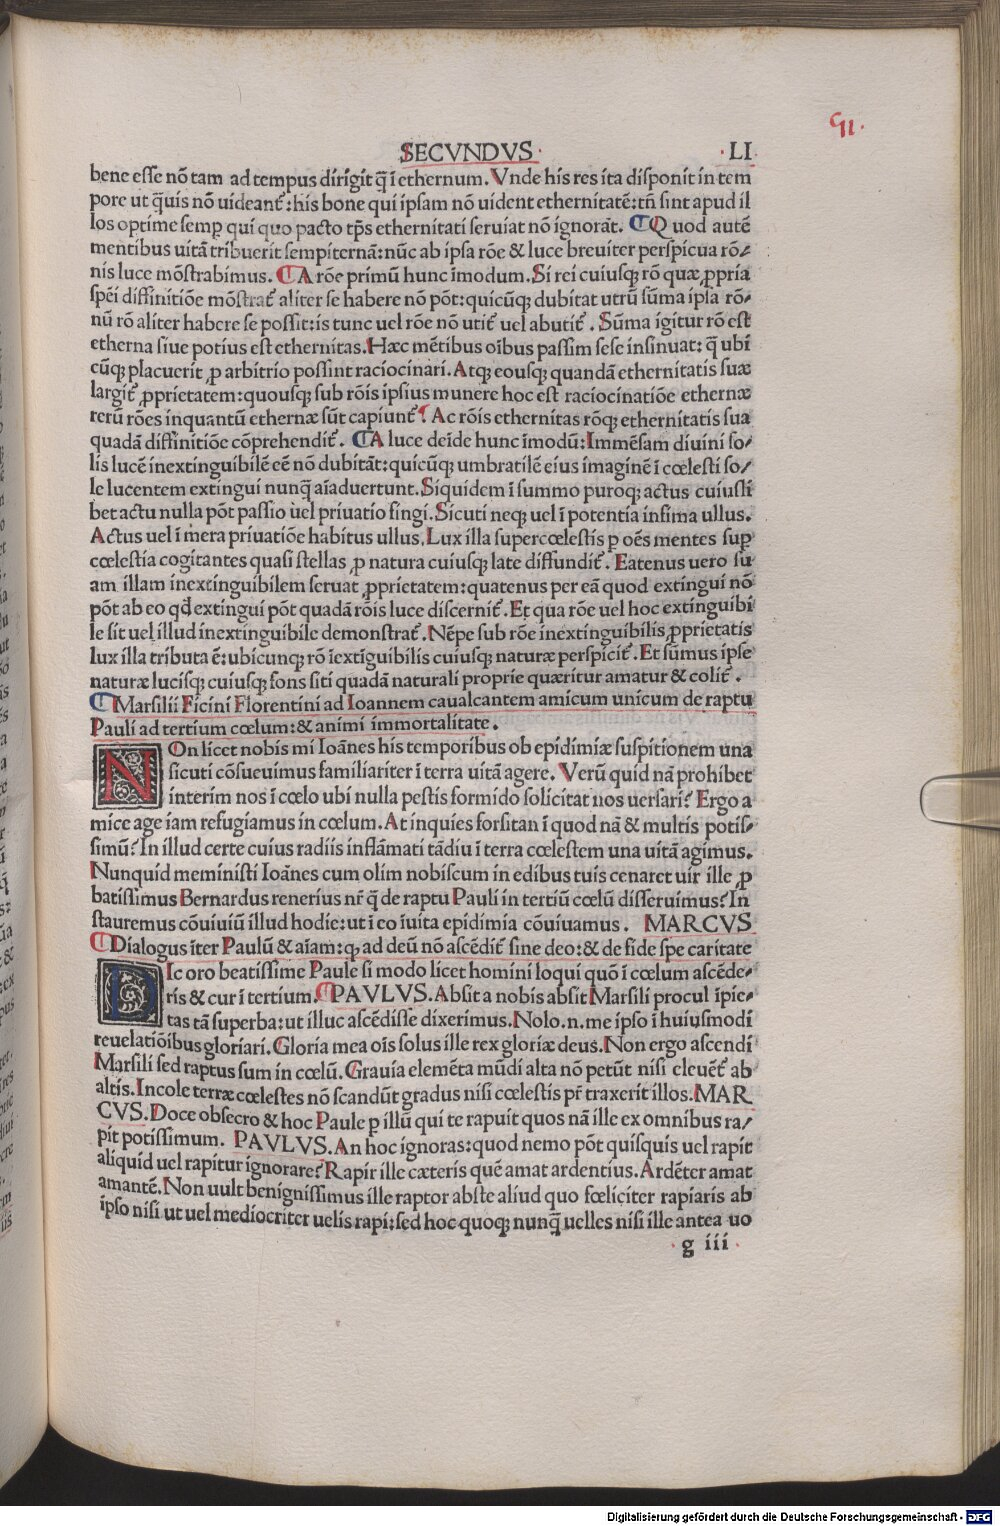 SECVNDVS · · LI
bene esse nō tam ad tempus dirigit q̄ ī ethernum. Vnde his res ita disponit in tem
pore ut q̄uis nō uideant᷑: his bone qui ipsam nō uident ethernitatē: tn̄ sint apud il
los optime semꝑ qui quo pacto tp̄s ethernitati seruiat nō ignorāt. Quod autē
mentibus uitā tribuerit sempiternā: nūc ab ipsa rōe & luce breuiter perspicua rō/
nis luce mōstrabimus. A rōe primū hunc īmodum. Si rei cuiusq; rō quæ ꝓpria
spēi diffinitiōe mōstrat᷑ aliter se habere nō pōt: quicūq; dubitat utrū sūma ipsa rō/
nū rō aliter habere se possit: is tunc uel rōe nō utit᷑ uel abutit᷑. Sūma igitur rō est
etherna siue potius est ethernitas. Hæc mētibus oībus passim sese insinuat: q̄ ubi
cūq; placuerit ꝓ arbitrio possint raciocinari. Atq; eousq; quandā ethernitatis suæ
largit᷑ ꝓprietatem: quousq; sub rōis ipsius munere hoc est raciocinatiōe ethernæ
rerū rōes inquantū ethernæ sūt capiunt᷑. Ac rōis ethernitas rōq; ethernitatis sua
quadā diffinitiōe cōprehendit᷑. A luce deīde hunc īmodū: Immēsam diuini so/
lis lucē inextinguibilē eē nō dubitāt: quicūq; umbratilē eius imaginē ī cœlesti so/
le lucentem extingui nunq̄ aīaduertunt. Siquidem ī summo puroq; actus cuiusli
bet actu nulla pōt passio uel priuatio fingi. Sicuti neq; uel ī potentia infima ullus.
Actus uel ī mera priuatiōe habitus ullus, Lux illa supercœlestis ꝑ oēs mentes suꝑ
cœlestia cogitantes quasi stellas ꝓ natura cuiusq; late diffundit᷑. Eatenus uero su
am illam inextinguibilem seruat ꝓprietatem: quatenus per eā quod extingui nō
pōt ab eo qđ extingui pōt quadā rōis luce discernit᷑. Et qua rōe uel hoc extinguibi
le sit uel illud inextinguibile demonstrat᷑. Nēpe sub rōe inextinguibilis ꝓprietatis
lux illa tributa ē: ubicunq; rō īextīguibilis cuiusq; naturæ perspicit᷑. Et sūmus ipse
naturæ lucisq; cuiusq; fons siti quadā naturali proprie quæritur amatur & colit᷑.
Marsilii Ficini Florentini ad Ioannem caualcantem amicum unicum de raptu
Pauli ad tertium cœlum: & animi immortalitate.
NOn licet nobis mi Ioānes his temporibus ob epidimiæ suspitionem una
sicuti cōsueuimus familiariter ī terra uitā agere. Verū quid nā prohibet
interim nos ī cœlo ubi nulla pestis formido solicitat nos uersari? Ergo a
mice age iam refugiamus in cœlum. At inquies forsitan ī quod nā & multis potis/
simū? In illud certe cuius radiis inflāmati tādiu ī terra cœlestem una uitā agimus.
Nunquid meministi Ioānes cum olim nobiscum in edibus tuis cenaret uir ille ꝓ
batissimus Bernardus renerius nr̄ q̄ de raptu Pauli in tertiū cœlū disseruimus? In
stauremus cōuiuiū illud hodie: ut ī eo īuita epidimia cōuiuamus. MARCVS
Dialogus īter Paulū & aīam: q; ad deū nō ascēdit᷑ sine deo: & de fide spe caritate
DIc oro beatissime Paule si modo licet homini loqui quō ī cœlum ascēde/
ris & cur ī tertium. PAVLVS. Absit a nobis absit Marsili procul īpie/
tas tā superba: ut illuc ascēdisse dixerimus. Nolo .n. me ipso ī huiusmodi
reuelatiōibus gloriari. Gloria mea oīs solus ille rex gloriæ deus. Non ergo ascendi
Marsili sed raptus sum in cœlū. Grauia elemēta mūdi alta nō petūt nisi eleuēt᷑ ab
altis. Incole terræ cœlestes nō scandūt gradus nisi cœlestis pr̄ traxerit illos. MAR
CVS. Doce obsecro & hoc Paule ꝑ illū qui te rapuit quos nā ille ex omnibus ra/
pit potissimum. PAVLVS. An hoc ignoras: quod nemo pōt quisquis uel rapit
aliquid uel rapitur ignorare? Rapir ille cæteris quē amat ardentius. Ardēter amat
amantē. Non uult benignissimus ille raptor abste aliud quo fœliciter rapiaris ab
ipso nisi ut uel mediocriter uelis rapi: sed hoc quoq; nunq̄ uelles nisi ille antea uo
g iii
Digitalisierung gefördert durch die Deutsche Forschungsgemeinschaft - DFG